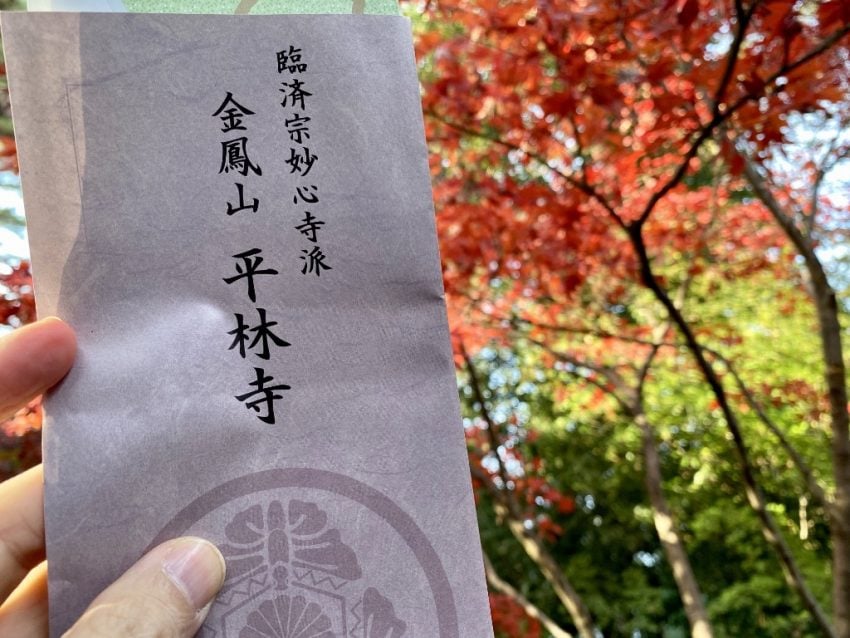 臨済宗妙心寺派
金鳳山 平林寺